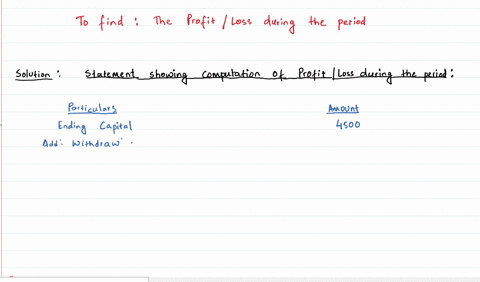 To find : The Profit / Loss during the period
Solution : Statement showing computation of Profit / Loss during the period :
Particulars Amount
Ending Capital 4500
Add: Withdraw